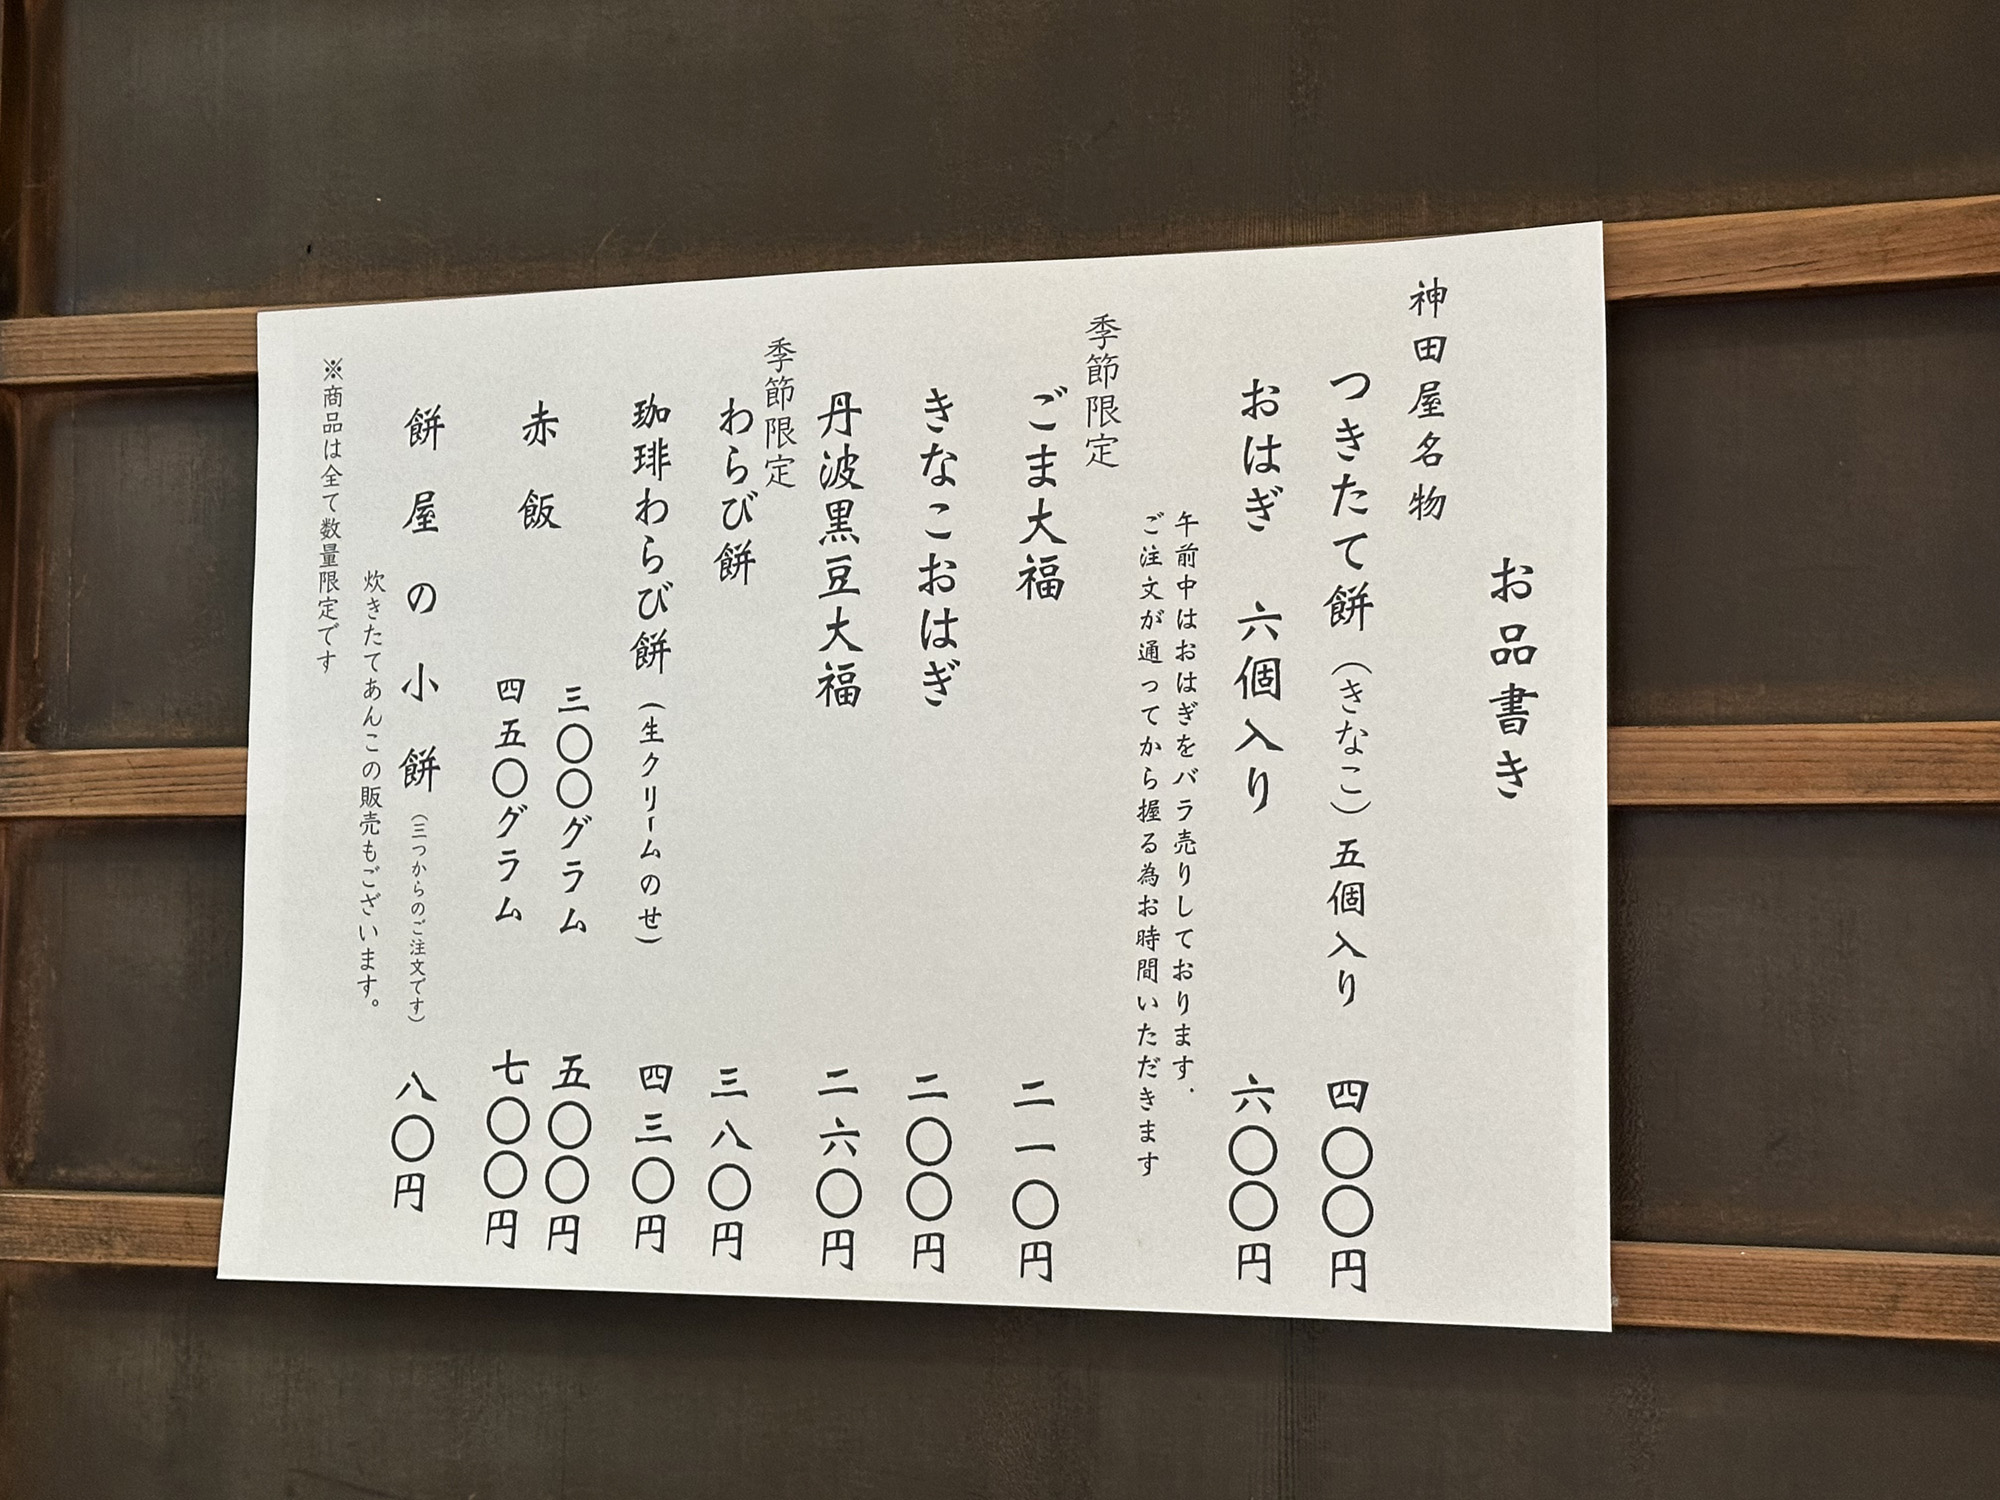 お品書き
神田屋名物
つきたて餅（きなこ）五個入り 四〇〇円
おはぎ 六個入り 六〇〇円
午前中はおはぎをバラ売りしております．
ご注文が通ってから握る為お時間いただきます
季節限定
ごま大福 二一〇円
きなこおはぎ 二〇〇円
丹波黒豆大福 二六〇円
季節限定
わらび餅 三八〇円
珈琲わらび餅（生クリームのせ） 四三〇円
赤飯
三〇〇グラム 五〇〇円
四五〇グラム 七〇〇円
餅屋の小餅（三つからのご注文です） 八〇円
炊きたてあんこの販売もございます。
※商品は全て数量限定です